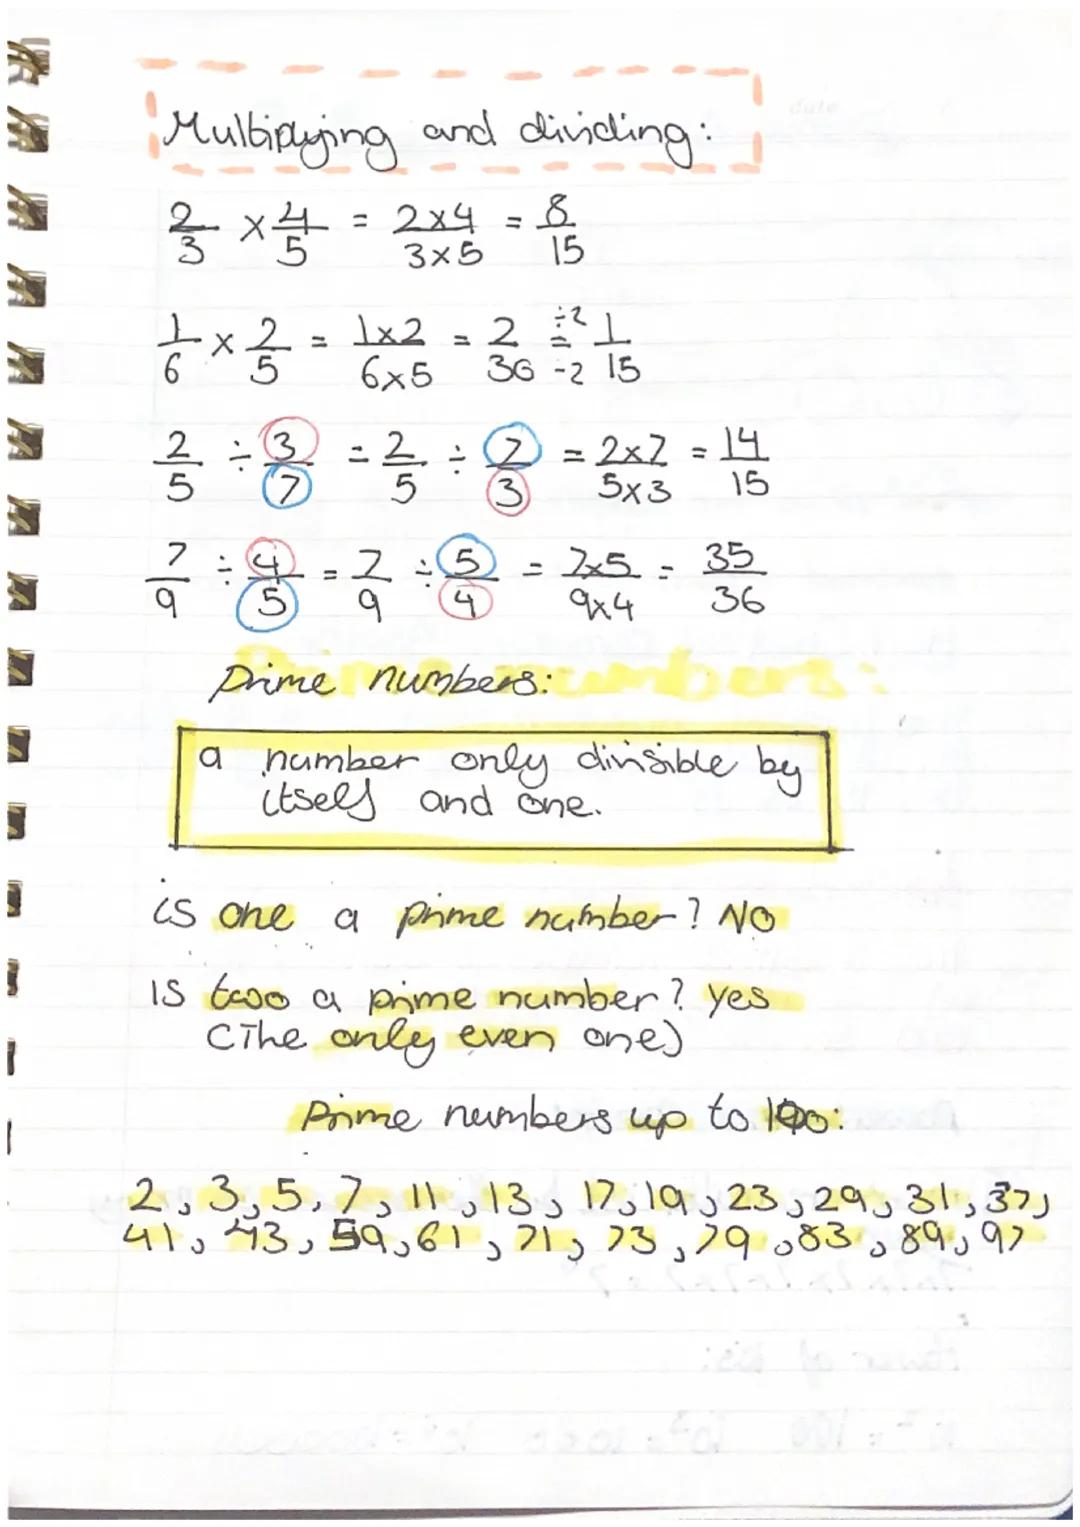 date
Multiplying and dividing:
2/3 × 4/5 = 2×4/3×5 = 8/15
1/6 × 2/5 = 1×2/6×5 = 2/30 ÷2 = ÷2 1/15
2/5 ÷ 3/7 = 2/5 ÷ 7/3 = 2×7/5×3 = 14/15
7/9 ÷ 4/5 = 7/9 ÷ 5/4 = 7×5/9×4 = 35/36
Prime numbers:
a number only divisible by
itself and one.
is one a prime number? NO
IS two a prime number? yes
(The only even one)
Prime numbers up to 100:
2, 3, 5, 7, 11, 13, 17, 19, 23, 29, 31, 37,
41, 43, 59, 61, 71, 73, 79, 83, 89, 97